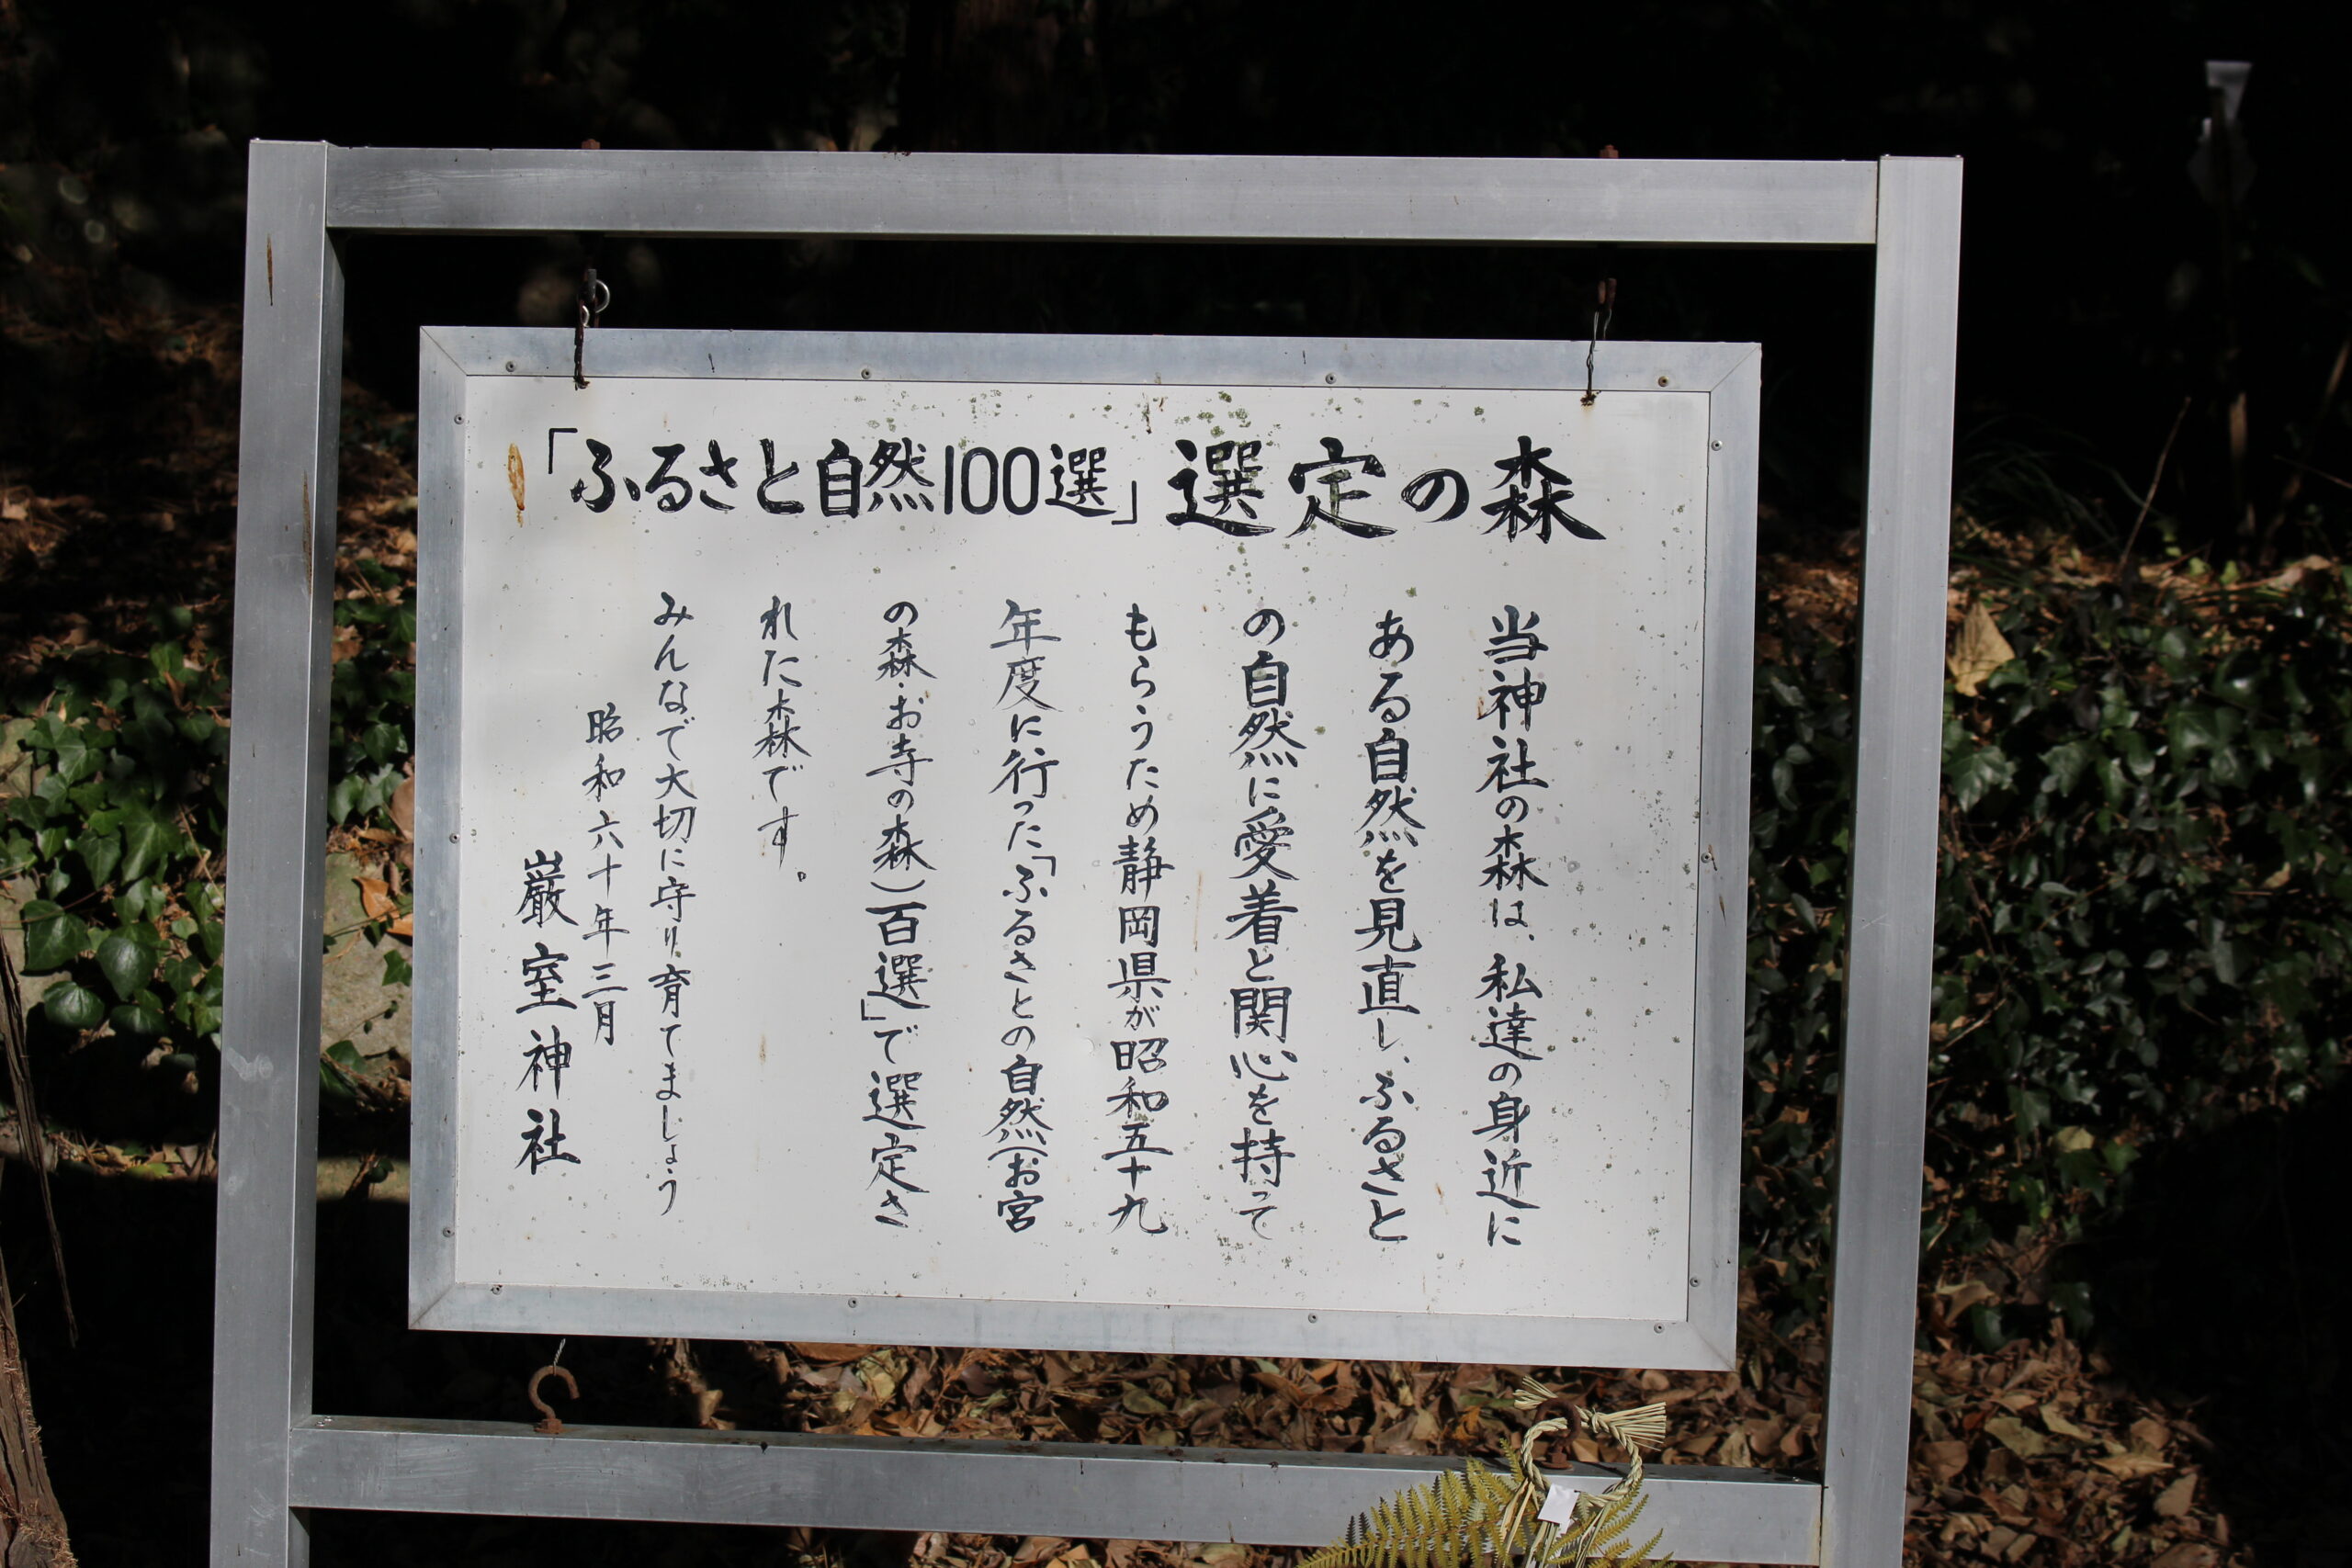 「ふるさと自然100選」選定の森
当神社の森は、私達の身近に
ある自然を見直し、ふるさと
の自然に愛着と関心を持って
もらうため静岡県が昭和五十九
年度に行った「ふるさとの自然(お宮
の森・お寺の森)百選」で選定さ
れた森です。
みんなで大切に守り育てましょう
昭和六十年三月
巌室神社